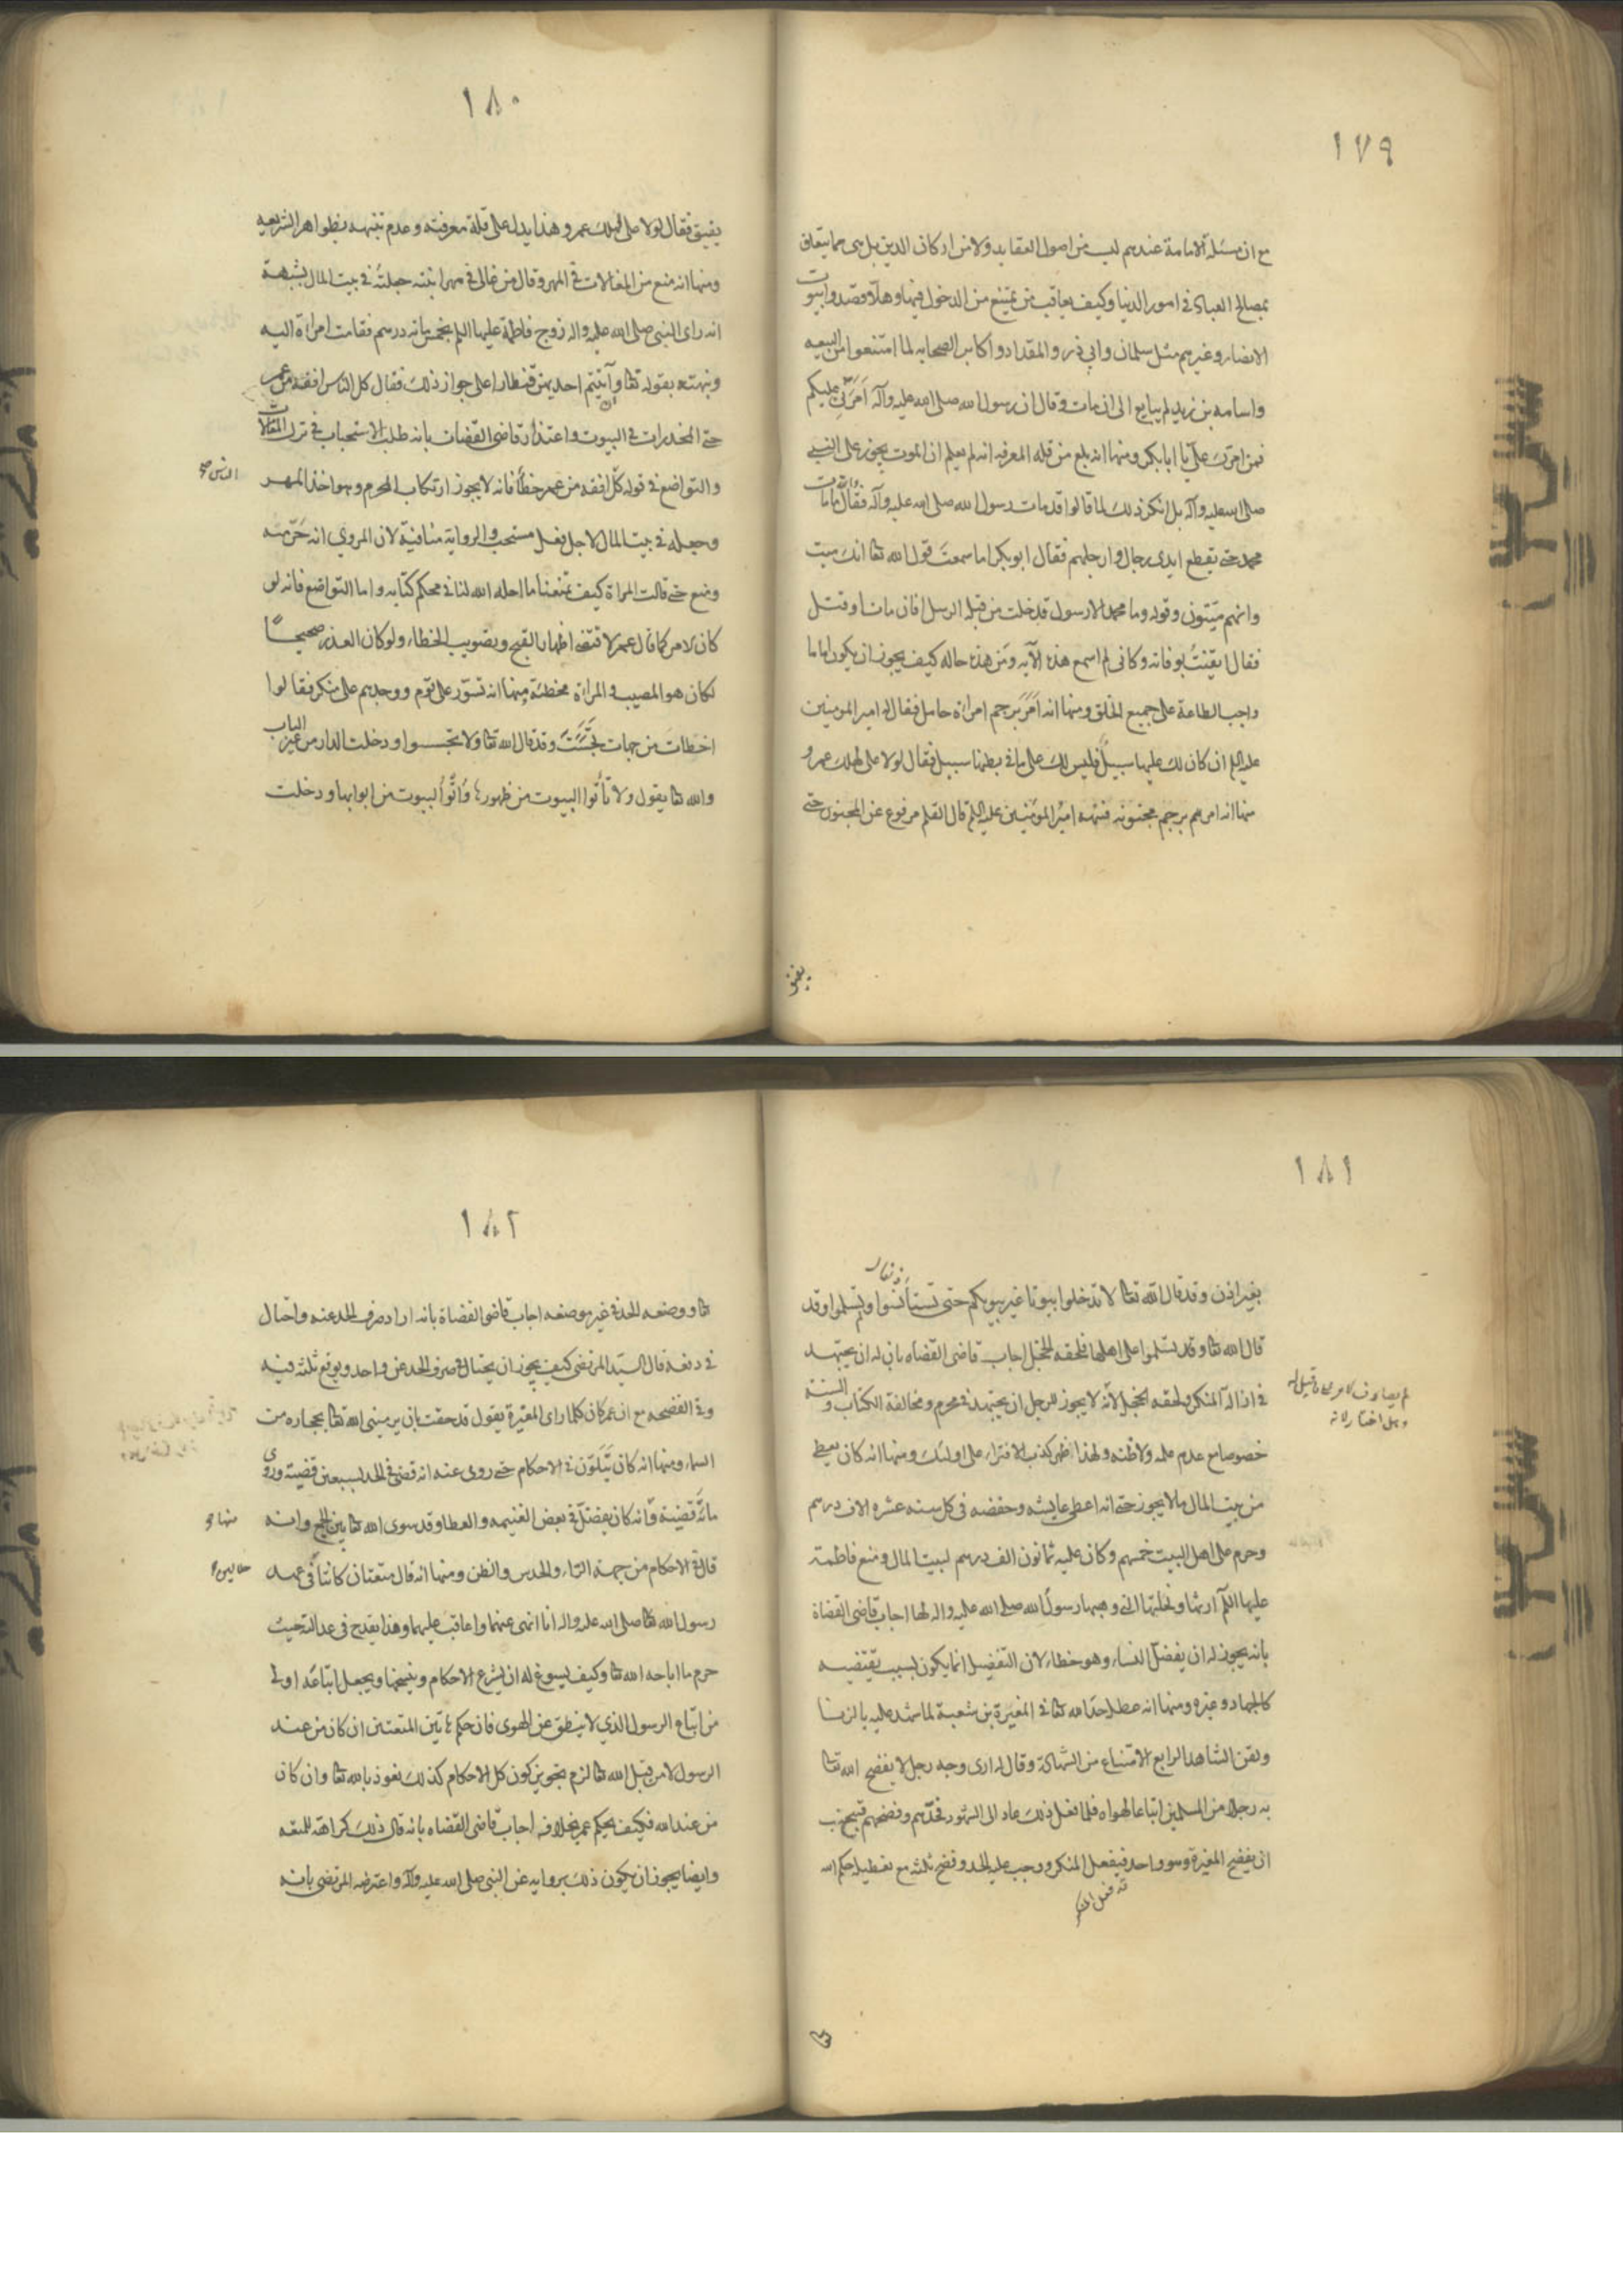 ١٧٩
مع ان مسئلة الامامة عندهم ليس من اصول العقايد ولا من اركان الدين بل هى مما يتعلق
بمصالح العباد فى امور الدنيا وكيف يعاقب من يمتنع من الدخول فيها وهلا قصدوا بيوت
الانصار وغيرهم مثل سلمان وابي ذر والمقداد و اكابر الصحابه لما امتنعوا من البيعه
واسامه بن زيد لم يبايع الى ان مات وقال ان رسول الله صلى الله عليه وآله اَمَّرَنى عليكم
فمن امّرك علىّ يا ابابكر ومنها انه بلغ من قله المعرفه انه لم يعلم ان الموت يجوز على النبي
صلى الله عليه وآله بل انكر ذلك لما قالوا قد مات رسول الله صلى الله عليه وآله فقال والله ما مات
محمد حتى يقطع ايدى رجال وارجلهم فقال ابو بكر اما سمعتَ قول الله تعا انك ميت
وانهم ميّتون وقوله وما محمد الا رسول قد خلت من قبله الرسل افان مات او قتل
فقال ايقنتُ بوفاته وكانى لم اسمع هذه الآيه ومَن هذه حاله كيف يجوز ان يكون اماما
واجب الطاعة على جميع الخلق ومنها انه اَمَرَ برجم امراة حامل فقال له امير المومنين
عليه السلم ان كان لك عليها سبيلٌ فليس لك على ما فى بطنها سبيل فقال لولا على لهلك عمر و
منها انه امر هم برجم مجنونه فنبّهه امير المؤمنين عليه السلم قال القلم مرفوع عن المجنون حتى
يفيق
١٨٠
يفيق فقال لولا على لهلك عمر و هذا يدل على قلة معرفته وعدم تنبهه بظواهر الشريعه
ومنها انه منع من المغالات فى المهر وقال من غالى فى مهر ابنته جعلته فى بيت المال بشبهة
انه راى النبى صلى الله عليه واله زوج فاطمة عليها السلم بخمس مائه درهم فقامت امراة اليه
ونبهته بقوله تعا وآتيتم احديهن قنطارا على جواز ذلك فقال كل الناس افقه من عمر
حتى المخدرات فى البيوت واعتذار قاضى القضات بانه طلب الاستحباب فى ترك المغالات
والتواضع فى قوله كل افقه من عمر خطأ فانه لا يجوز ارتكاب المحرم وهو اخذ المهر
الناس صح
وجعله فى بيت المال لاجل فعل مستحب والرواية منافيةٌ لان المروي انه حَرّمه
ومنع حتى قالت المراة كيف تمنعنا ما احله الله لنا فى محكم كتابه واما التواضع فانه لو
كان الامر كما قال عمر لاقتضى اظهار القبيح وتصويب الخطاء ولو كان العذر صحيحاً
لكان هو المصيب والمراة مخطئة ومنها انه تسوّر على قوم ووجدهم على منكر فقالوا
اخطات من جهات تجسّستَ وقد قال الله تعا ولا تجسسوا ودخلت الدار من غير الباب
والله تعا يقول ولا تأتوا البيوت من ظهورها وَأتُوا البيوت من ابوابها ودخلت
١٨١
بغير اذن وقد قال الله تعا لا تدخلوا بيوتا غير بيوتكم حتى تستأنسوا وتسلموا وقد
قال الله تعا وقد تسلموا على اهلها فلحقه الخجل اجاب قاضى القضاه بان له ان يجتهد
فى ازالة المنكر ولحقه الخجل لانّه لا يجوز للرجل ان يجتهد فى محرم ومخالفة الكتاب و السنة
خصوصا مع عدم علمه ولا ظنه ولهذا ظهر كذب الافتراء على اولئك ومنها انه كان يعطى
من بيت المال ما لا يجوز حتى انه اعطى عايشه وحفصه فى كل سنه عشره الاف درهم
وحرم على اهل البيت خمسهم وكان عليه ثمانون الف درهم لبيت المال ومنع فاطمة
عليها السلم ارثها ونحلتها التى وهبها رسول الله صلى الله عليه واله لها اجاب قاضى القضاة
بانه يجوز له ان يفضل النساء وهو خطاء لان التفضيل انما يكون لسبب يقتضيه
كالجهاد وغيره ومنها انه عطل حدّ الله تعا فى المغيرة بن شعبة لما شهد عليه بالزنا
ولقن الشاهد الرابع الامتناع من الشهادة وقال له ارى وجه رجل لا يفضح الله تعا
به رجلا من المسلمين اتباعا لهواه فلما فعل ذلك عاد الى الشهود فحدّهم وفضحهم فتجنب
ان يفضح المغيرة وهو واحد فيفعل المنكر ووجب عليه الحد وفضح ثلثه مع تعطيله حكم الله
١٨٢
تعا ووضعه الحد فى غير موضعه اجاب قاضى القضاة بانه اراد صرف الحد عنه واحتال
فى دفعه قال السيّد المرتضى كيف يجوز ان يحتال فى صرف الحد عن واحد ويوقع ثلثه فيه
وفى الفضيحه مع ان عمر كان كلما راى المغيرة يقول قد خفت بان يرمينى الله تعا بحجاره من
السماء ومنها انه كان يَتَلَوّن فى الاحكام حتى روى عنه انه قضى فى الحد بسبعين قضية وروى
مائة قضيته وَانه كان يفضل فى بعض الغنيمه والعطا وقد سوى الله تعا بين الجميع وانه
منها و
قال فى الاحكام من جهة الراء والحدس والظن ومنها انه قال متعتان كانتا فى عهد
رسول الله تعا صلى الله عليه واله انا انهى عنهما واعاقب عليهما وهذا يقدح فى عدالته حيث
حرم ما اباحه الله تعا وكيف يسوغ له ان يشرع الاحكام وينسخها ويجعل اتباعَه اولى
من اتباع الرسول الذي لا ينطق عن الهوى فان حكم هاتين المتعتين ان كان من عند
الرسول لا من قِبَل الله تعا لزم تجويز كون كل الاحكام كذلك نعوذ بالله تعا وان كان
من عند الله فكيف يحكم عمر بخلافه اجاب قاضى القضاه بانه قال ذلك كراهة للمتعه
وايضا يجوز ان يكون ذلك بروايه عن النبى صلى الله عليه وآله واعترضه المرتضى بانه